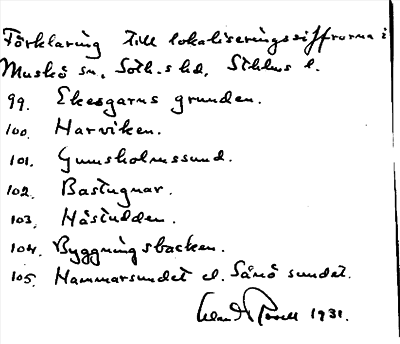 Förklaring till lokaliseringssiffrorna i
Muskö sn, Soth.s hd, Sthlms l.
99. Ekesgarns grunden.
100. Harviken.
101. Gumsholmssund.
102. Bastugnar.
103. Håstudden.
104. Byggningsbacken.
105. Hammarsundet el. Sånö sundet.
1931.